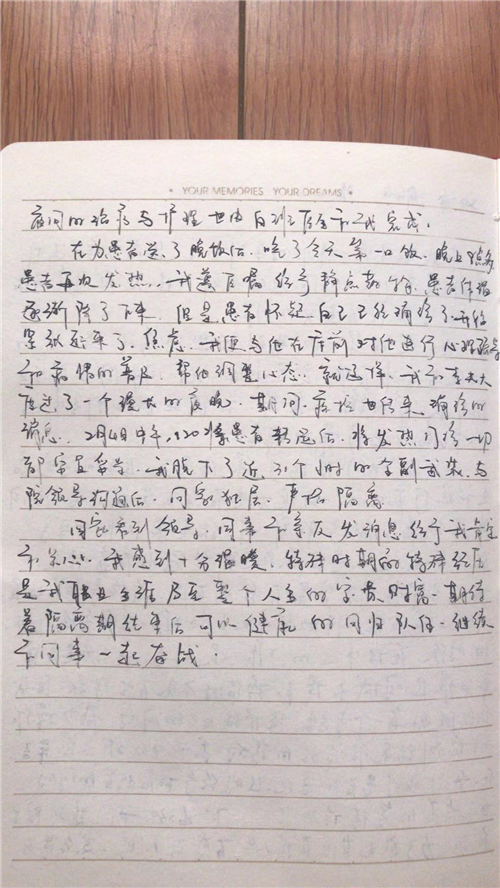 YOUR MEMORIES YOUR DREAMS
夜间的治疗与护理也由白班医生和我完成.
在为患者送了晚饭后,吃了今天第一口饭,晚上8点多
患者再次发热,我遵医嘱给予静点药物,患者体温
逐渐降了下来.但是患者怀疑自己已经确诊了开始
紧张起来了,焦虑,我便与他在床前对他进行心理疏导
和病情的普及,帮他调整心态,就这样,我和李大夫
度过了一个漫长的夜晚.期间,疾控也传来确诊的
消息.2月4日中午,120将患者转运后,将发热门诊一切
都安置妥当,我脱下了近31个小时的全副武装,与
院领导沟通后,回家独居,严格隔离
回家看到领导,同事和亲友发消息给予我肯定
和关心.我感到十分温暖,特殊时期的特殊经历
是我职业生涯乃至整个人生的宝贵财富.期待
着隔离期结束后可以健康的回归队伍.继续
和同事一起奋战.